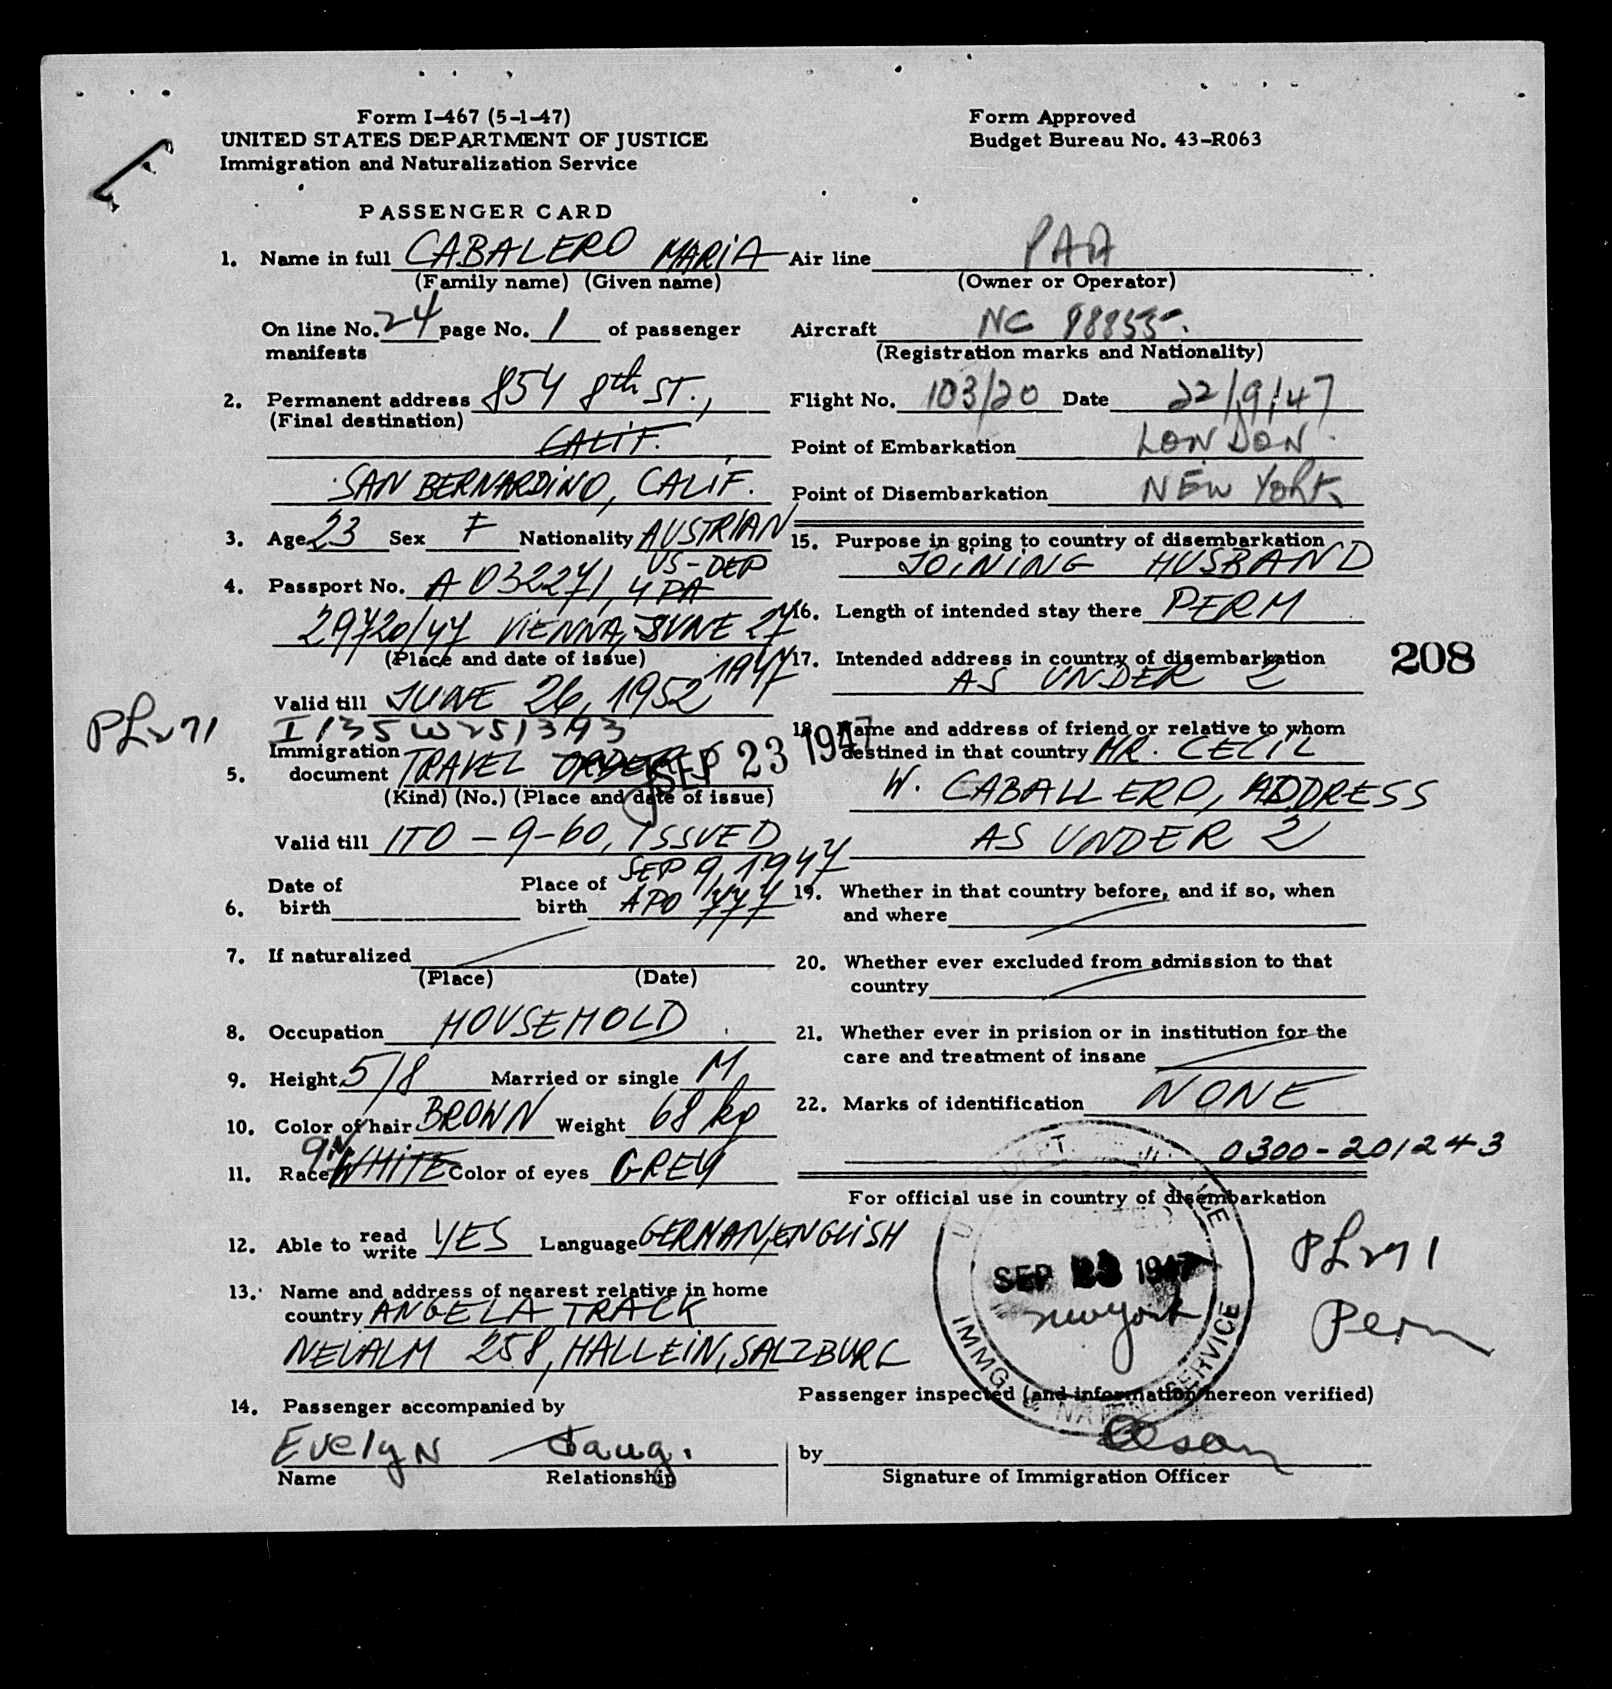 Form I-467 (5-1-47)
UNITED STATES DEPARTMENT OF JUSTICE
Immigration and Naturalization Service
Form Approved
Budget Bureau No. 43-R063
PASSENGER CARD
1. Name in full CABALERO MARIA
(Family name) (Given name)
On line No. 24 page No. 1 of passenger
manifests
2. Permanent address 854 8th ST.,
(Final destination)
CALIF.
SAN BERNARDINO, CALIF.
3. Age 23 Sex F Nationality AUSTRIAN
US-DEP
4. Passport No. A 032271, 4 PA
29720/47 VIENNA, JUNE 27
(Place and date of issue) 1947
Valid till JUNE 26, 1952
PL271 I 135 W251393
SEP 23 1947
5. Immigration
document TRAVEL ORDER
(Kind) (No.) (Place and date of issue)
Valid till ITO-9-60, ISSUED
SEP 9, 1947
6. Date of
birth Place of
birth APO 777
7. If naturalized
(Place) (Date)
8. Occupation HOUSEHOLD
9. Height 5/8 Married or single M
10. Color of hair BROWN Weight 68 kg
11. Race WHITE Color of eyes GREY
12. Able to read
write YES Language GERMAN, ENGLISH
13. Name and address of nearest relative in home
country ANGELA TRACK
NEUALM 258, HALLEIN, SALZBURG
14. Passenger accompanied by
Evelyn daug.
Name Relationship
Air line PAA
(Owner or Operator)
Aircraft NC 88855
(Registration marks and Nationality)
Flight No. 103/20 Date 22/9/47
Point of Embarkation LONDON
Point of Disembarkation NEW YORK
15. Purpose in going to country of disembarkation
JOINING HUSBAND
16. Length of intended stay there PERM
17. Intended address in country of disembarkation
AS UNDER 2
208
18. Name and address of friend or relative to whom
destined in that country MR. CECIL
W. CABALLERO, ADDRESS
AS UNDER 2
19. Whether in that country before, and if so, when
and where
20. Whether ever excluded from admission to that
country
21. Whether ever in prision or in institution for the
care and treatment of insane
22. Marks of identification NONE
0300-201243
For official use in country of disembarkation
SEP 23 1947
New York
IMMG. SERVICE
PL271
Perm
Passenger inspected (and information hereon verified)
by
Signature of Immigration Officer